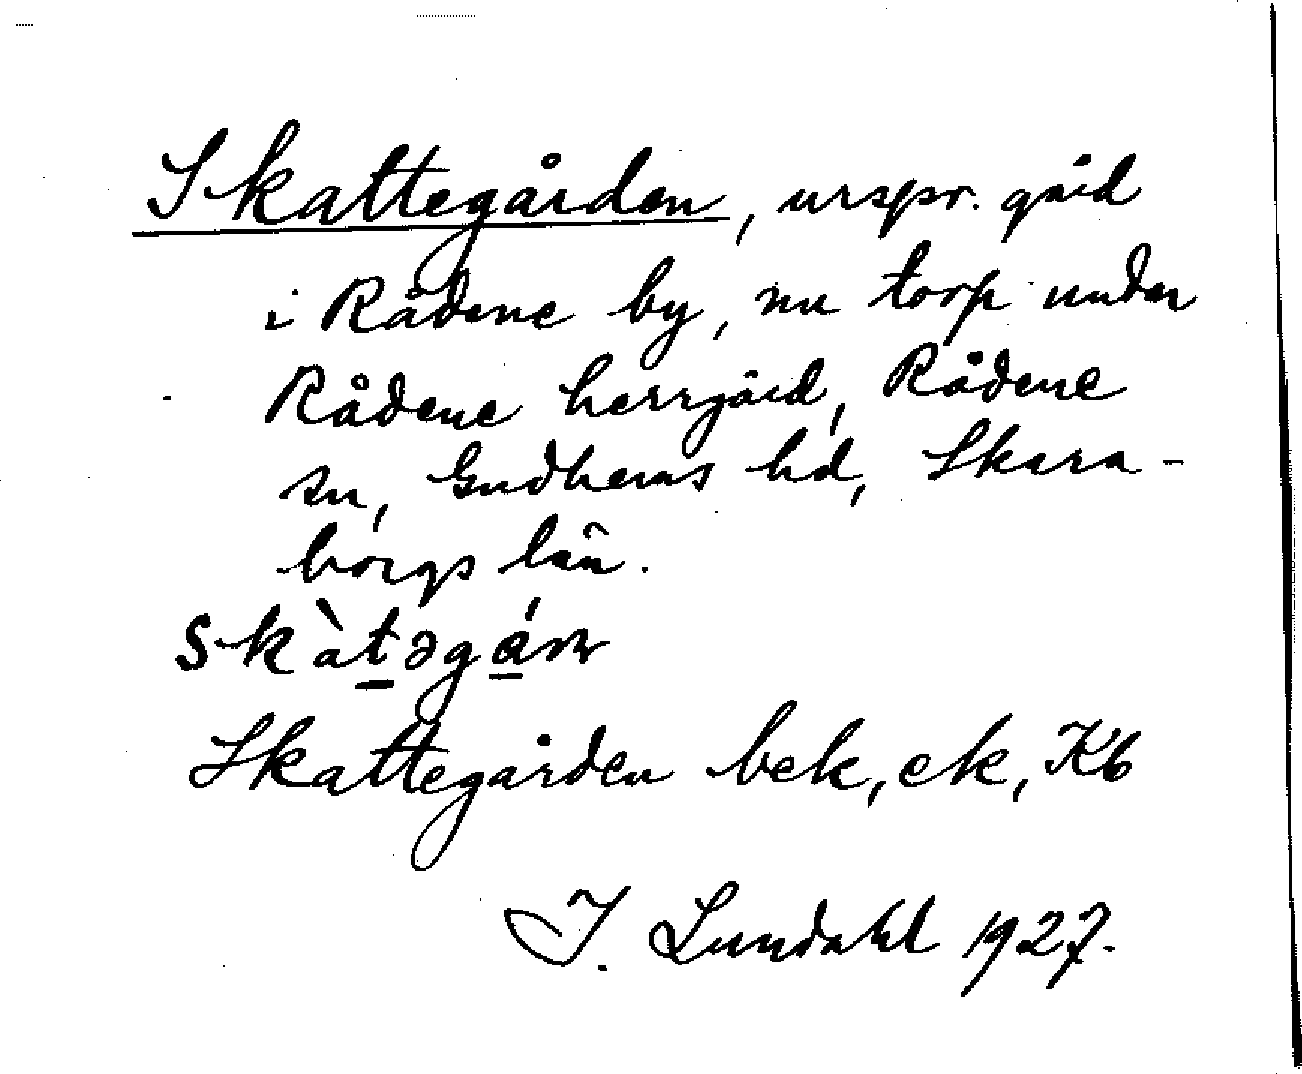 Skattegården, urspr. gård
i Rådene by, nu torp under
Rådene herrgård, Rådene
sn, Gudhems hd, Skara-
borgs län.
skàt̠əgá̠ɳ
Skattegården bek, ek, Kb
I. Lundahl 1927.